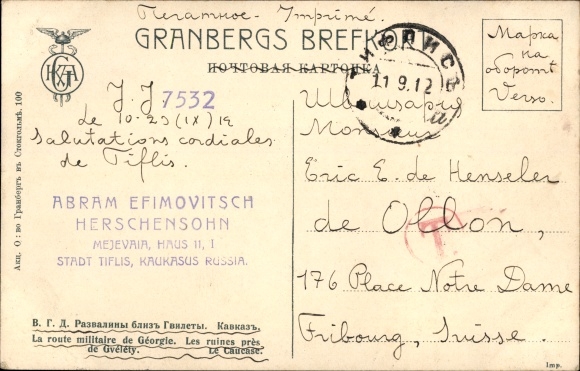 Печатное - Imprimé.
GRANBERGS BREFKORT
ПОЧТОВАЯ КАРТОЧКА
ТИФЛИСЪ
11.9.12
Марка
на
оборотѣ
Verso.
J. J. 7532
Le 10-23 (IX) 12
Salutations cordiales
de Tiflis.
ABRAM EFIMOVITSCH
HERSCHENSOHN
MEJEVAIA, HAUS 11, 1
STADT TIFLIS, KAUKASUS RUSSIA.
Швейцария
Monsieur
Eric E. de Henseler
de Ollon,
T
176 Place Notre Dame
Fribourg, Suisse.
В. Г. Д. Развалины близъ Гвилеты. Кавказъ.
La route militaire de Géorgie. Les ruines près
de Gvélety. Le Caucase.
Акц. О:во Гранбергъ въ Стокгольмѣ. 100
Imp.